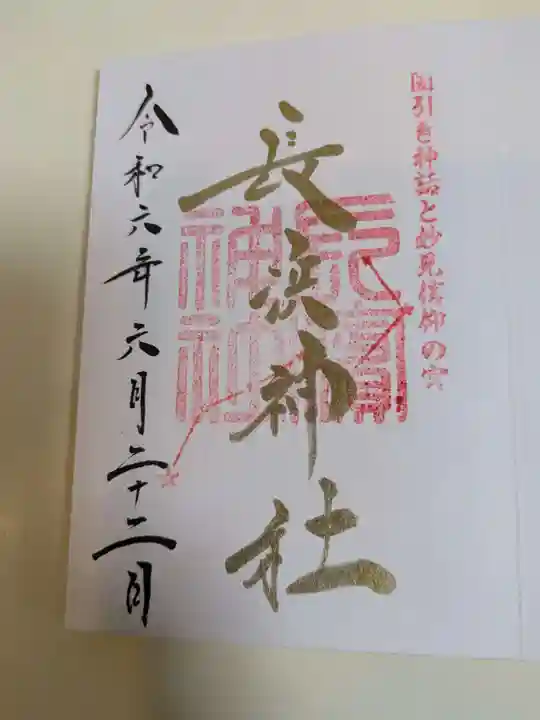 国引き神話と妙見信仰の宮
長浜神社
令和六年六月二十二日